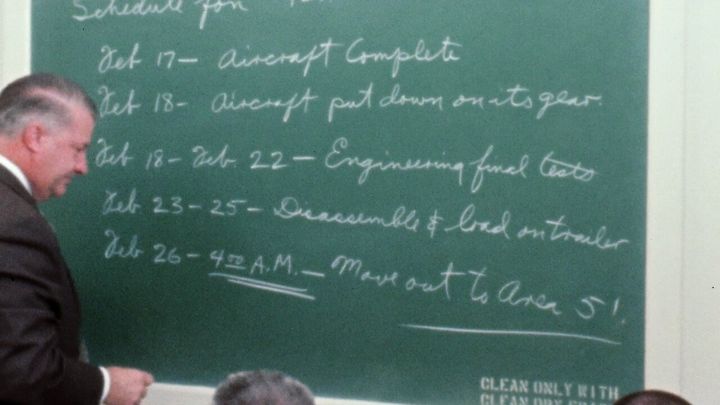 Schedule for
Feb 17 — Aircraft Complete
Feb 18 - Aircraft put down on its gear.
Feb 18 - Feb. 22 — Engineering final tests
Feb. 23 - 25 - Disassemble & load on trailer
Feb 26 - 4:00 A.M. — Move out to Area 51.
CLEAN ONLY WITH
CLEAN DRY